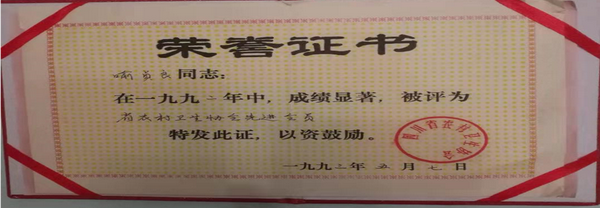 荣誉证书
同志:
在一九九二年中,成绩显著,被评为
省农村卫生协会先进会员
特发此证,以资鼓励。
一九九三年五月七日
四川省农村卫生协会